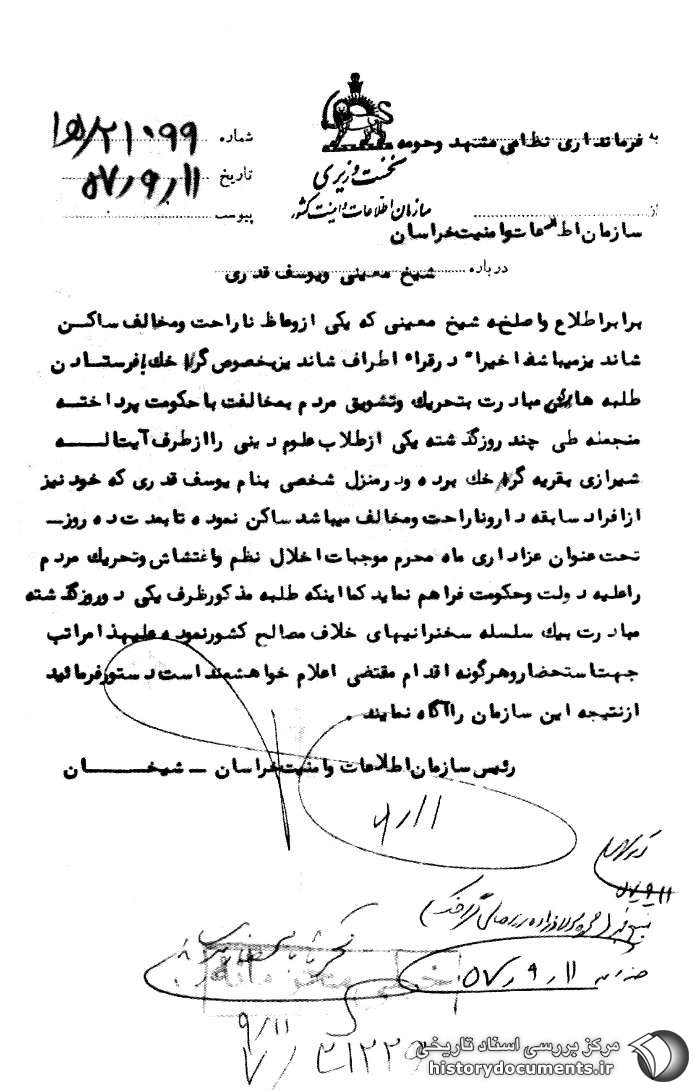 به فرمانداری نظامی مشهد وحومه
شماره ۲۱۰۹۹/ه۱
نخست وزیری
تاریخ ۵۷٫۹٫۱۱
سازمان اطلاعات و امنیت کشور
پیوست
از
سازمان اطلاعات وامنیت خراسان
درباره شیخ معینی ویوسف قدری
برابر اطلاع واصله شیخ معینی که یکی ازوعاظ ناراحت ومخالف ساکن
شاند یزمیباشد اخیراً درقراء اطراف شاند یزبخصوص گراخک بافرستادن
طلبه هائی مبادرت بتحریک وتشویق مردم بمخالفت باحکومت پرداخته
منجمله طی چند روزگذشته یکی ازطلاب علوم دینی راازطرف آیت اله
شیرازی بقریه گراخک برده ودرمنزل شخصی بنام یوسف قدری که خود نیز
ازافراد سابقه داروناراحت ومخالف میباشد ساکن نموده تابعدت ده روز
تحت عنوان عزاداری ماه محرم موجبات اخلال نظم واغتشاش وتحریک مردم
راعلیه دولت وحکومت فراهم نماید کمااینکه طلبه مذکورظرف یکی دوروزگذشته
مبادرت بیک سلسله سخنرانیهای خلاف مصالح کشورنموده علیهذا مراتب
جهت استحضاروهرگونه اقدام مقتضی اعلام خواهشمند است دستورفرمائید
ازنتیجه این سازمان راآگاه نمایند .
رئیس سازمان اطلاعات وامنیت خراسان ــ شیخان
۹٫۱۱
۵۷٫۹٫۱۱
۵۷٫۹٫۱۱
خیلی محرمانه
۹٫۱۱
مرکز بررسی اسناد تاریخی
historydocuments.ir